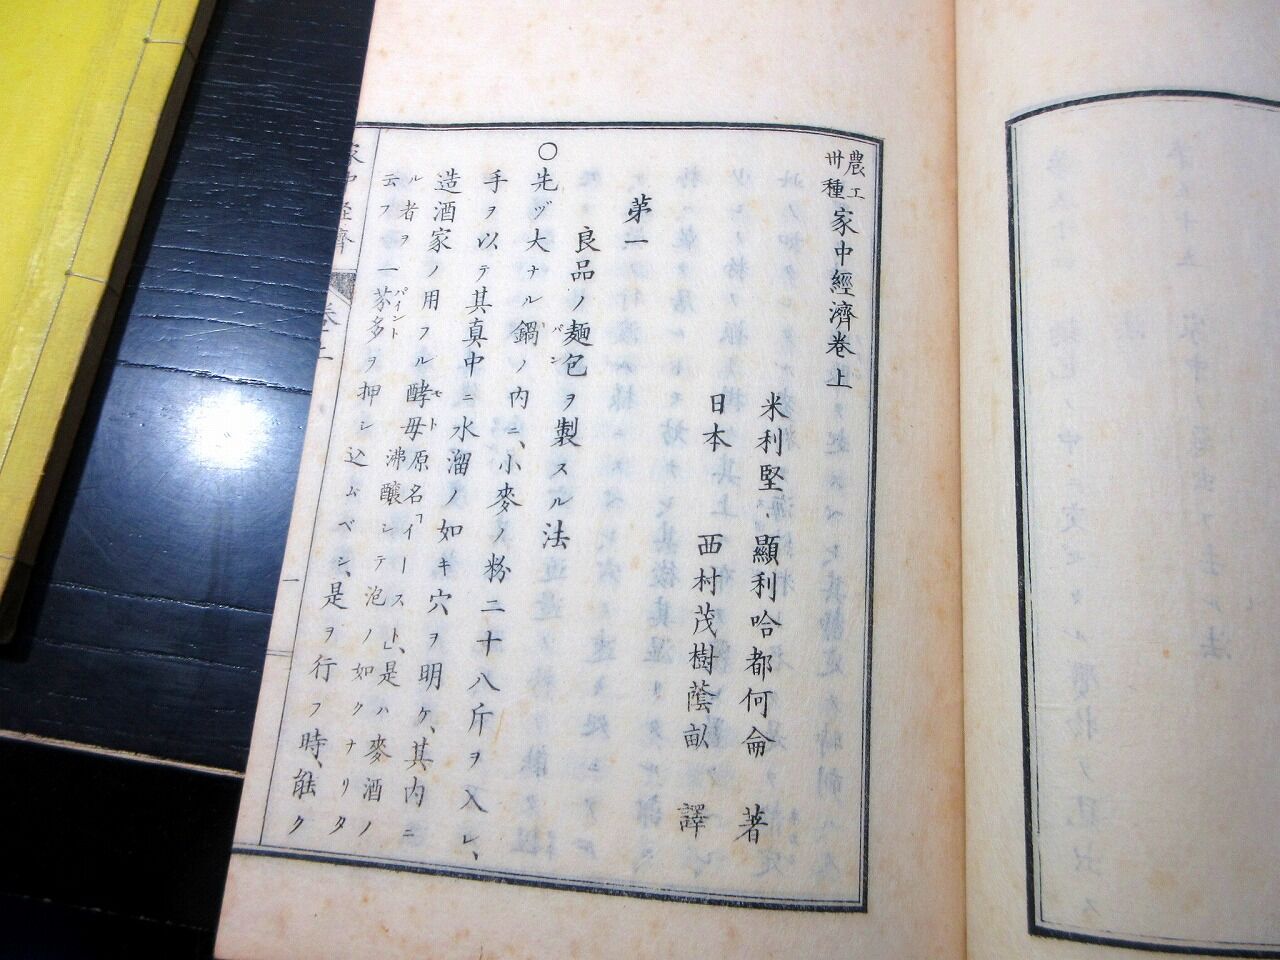 農工卅種家中經濟卷上
米利堅 顯利哈都何侖 著
日本 西村茂樹蔭畝 譯
第一
良品ノ麺包ヲ製スル法
バン
○先ヅ大ナル鍋ノ内ニ、小麥ノ粉二十八斤ヲ入レ、
手ヲ以テ其真中ニ水溜ノ如キ穴ヲ明ケ、其内ニ
造酒家ノ用フル酵母原名「イースト」、是ハ麥酒ノ
モト
沸釀シテ泡ノ如クナリタ
ル者ヲ
云フ一芬多ヲ押シ込ムベシ、是ヲ行フ時、能ク
パイント
家中經濟 卷上 一